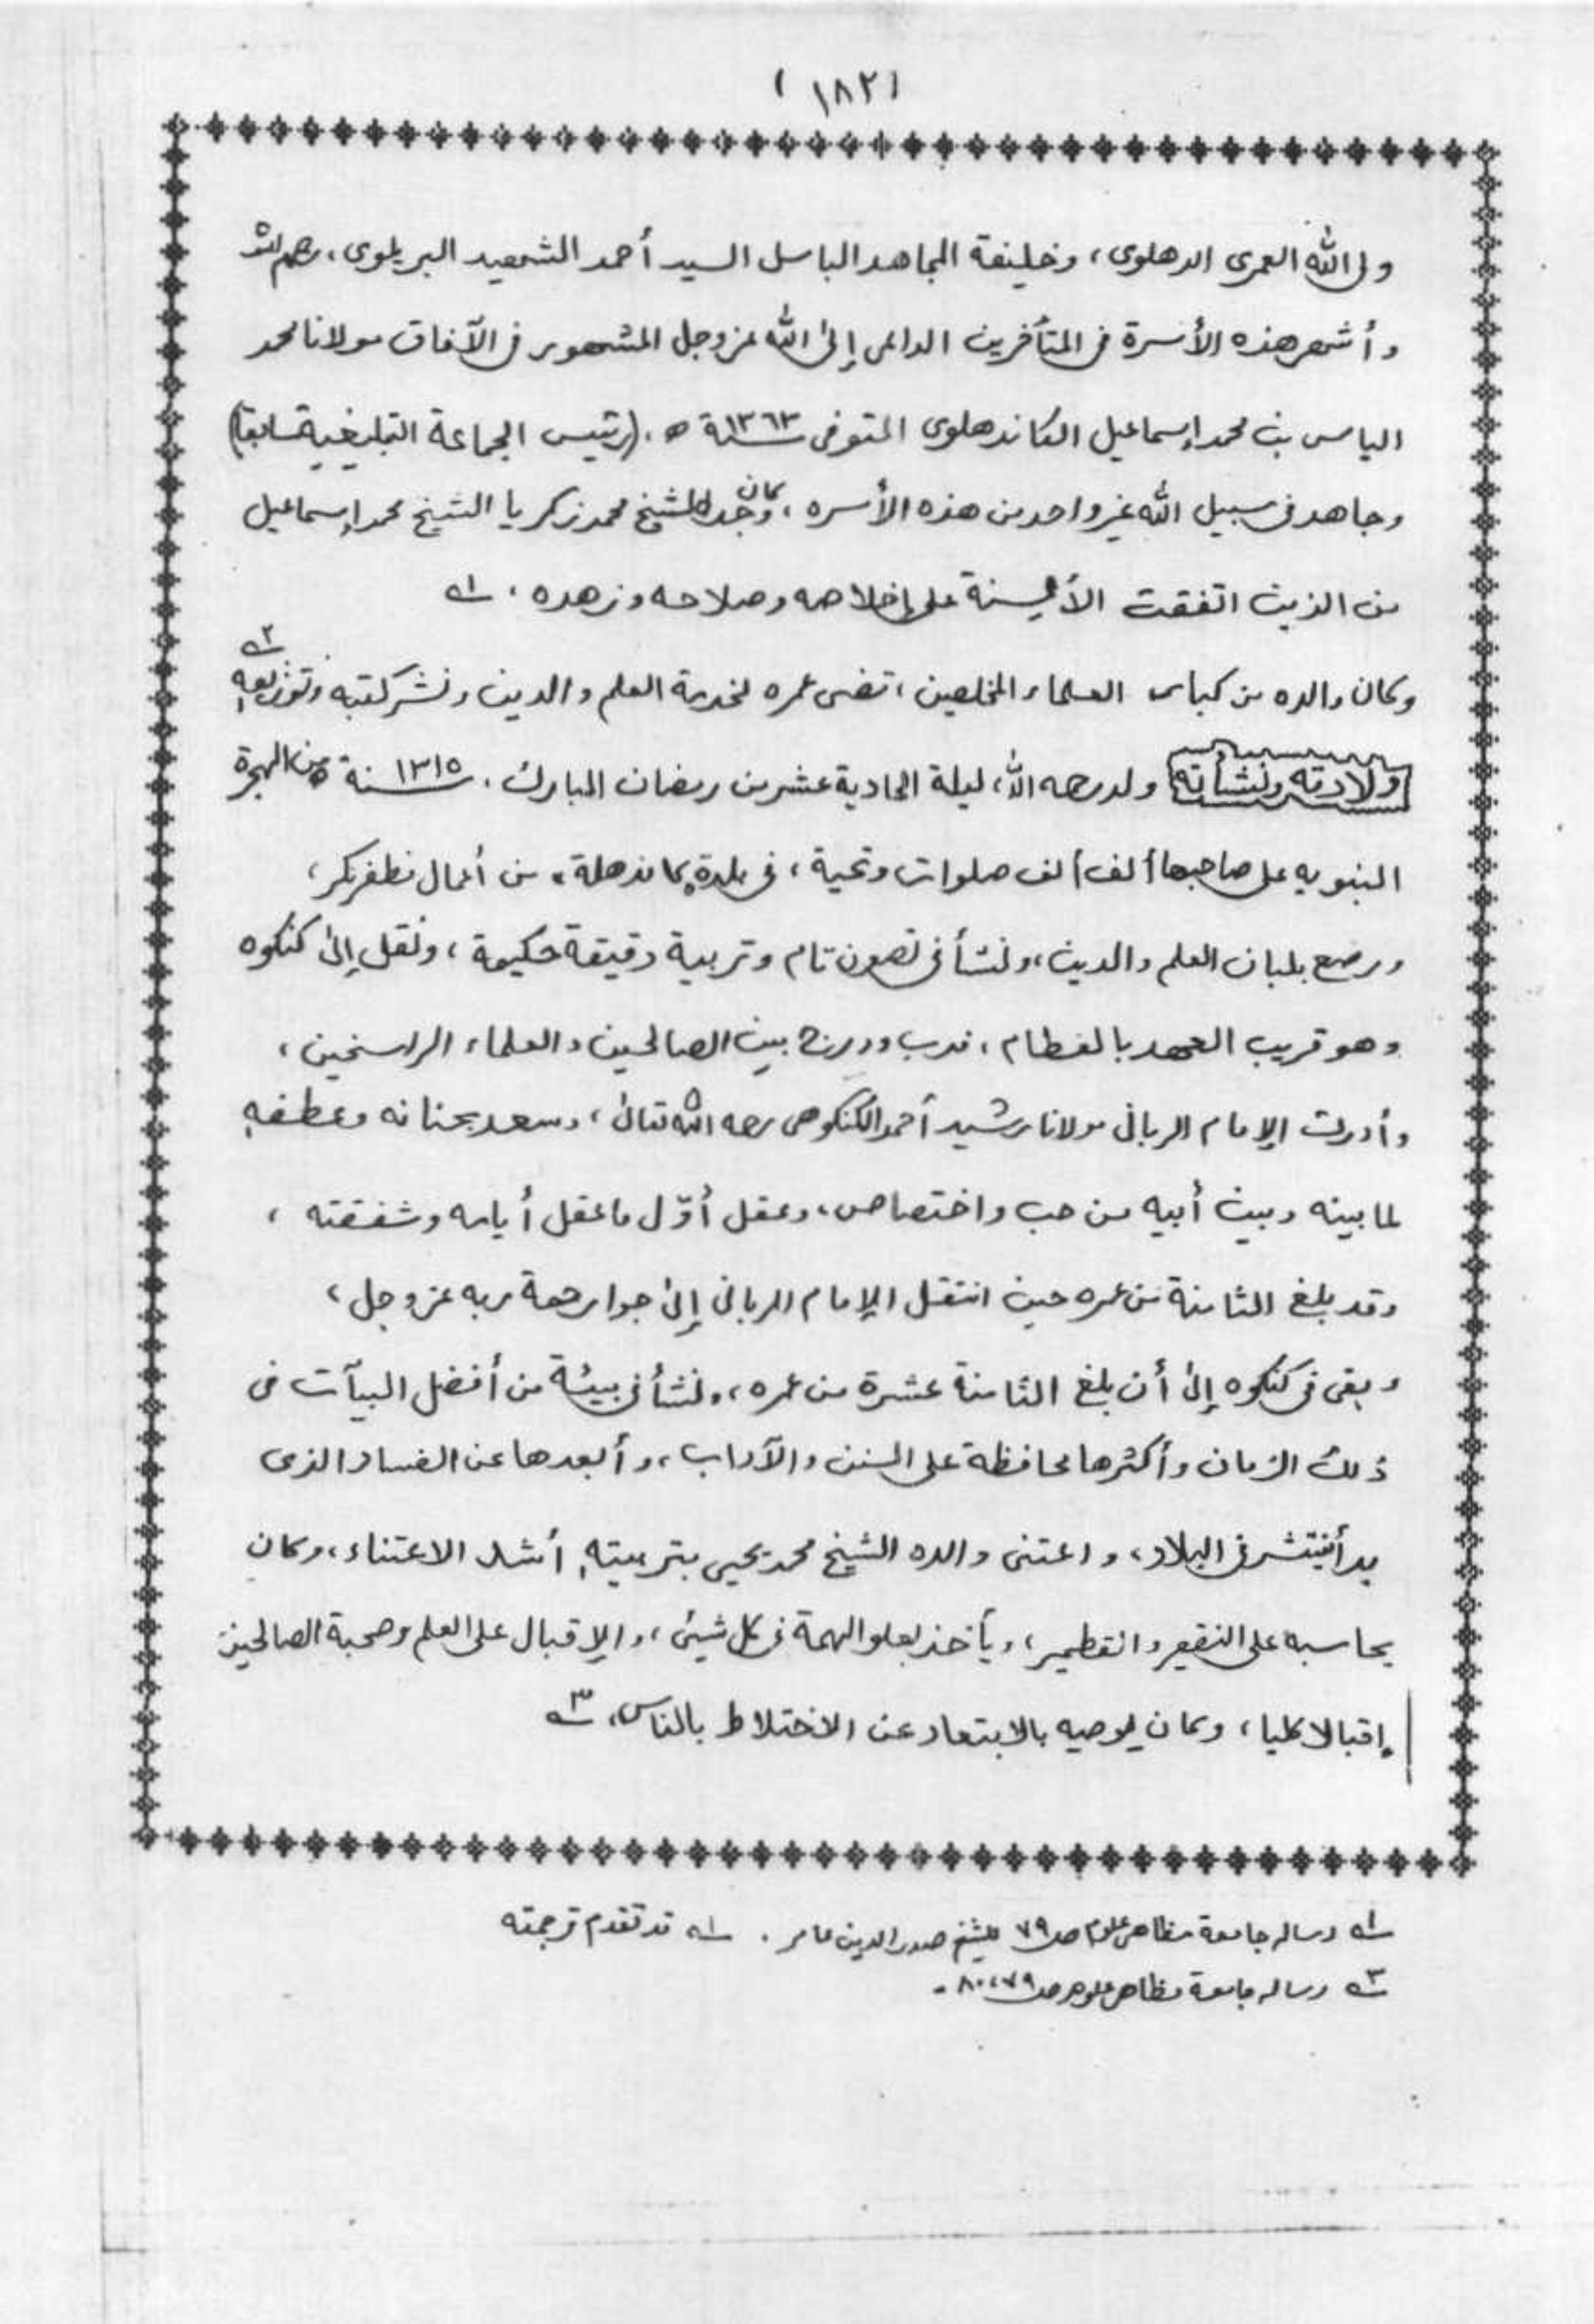 (١٨٢)
ولى الله العمرى الدهلوى، وخليفة المجاهد الباسل السيد أحمد الشهيد البريلوى، رحمهم الله
وأشهر هذه الأسرة فى المتأخرين الداعى إلى الله عزوجل المشهور فى الآفاق مولانا محمد
الياس بن محمد إسماعيل الكاندهلوى المتوفى سنة ١٣٦٣ ه. (رئيس الجماعة التبليغية سابقا)
وجاهد فى سبيل الله غير واحد من هذه الأسره، وكان جد الشيخ محمد زكريا الشيخ محمد إسماعيل
من الذين اتفقت الألسنة على إخلاصه وصلاحه وزهده. ١ــه
وكان والده من كبار العلماء المخلصين، قضى عمره لخدمة العلم والدين ونشر كتبه وتوزيعه ٢ــه
ولادته ونشأته ولد رحمه الله، ليلة الحادية عشر من رمضان المبارك. سنة ١٣١٥ ه من الهجرة
النبويه على صاحبها ألف ألف صلوات وتحية، فى بلدة كاندهلة، من أعمال مظفرنكر،
ورضع بلبان العلم والدين، ونشأ فى تصون تام وتربية دقيقة حكيمة، ونقل إلى كنكوه
وهو قريب العهد بالفطام، فدب ودرج بين الصالحين والعلماء الراسخين،
وأدرك الإمام الربانى مولانا رشيد أحمد الكنكوهى رحمه الله تعالى، وسعد بحنانه وعطفه
لما بينه وبين أبيه من حب واختصاص، وعقل أوّل ما عقل أيامه وشفقته،
وقد بلغ الثامنة من عمره حين انتقل الإمام الربانى إلى جوار رحمة ربه عزوجل،
وبقى فى كنكوه إلى أن بلغ الثامنة عشرة من عمره، ونشأ فى بيئة من أفضل البيآت فى
ذلك الزمان وأكثرها محافظة على السنن والآداب، وأبعدها عن الفساد الذى
بدأ ينتشر فى البلاد، واعتنى والده الشيخ محمد يحيى بتربيته أشد الاعتناء، وكان
يحاسبه على النقير والقطمير، ويأخذ بعلو الهمة فى كل شيئ، والإقبال على العلم وصحبة الصالحين
إقبالا كليا، وكان يوصيه بالابتعاد عن الاختلاط بالناس. ٣ــه
١ــه رساله جامعة مظاهر علوم ص ٧٩ للشيخ صدر الدين عامر. ١ــه قد تقدم ترجمته
٣ــه رساله جامعة مظاهر علوم ص ٧٩، ٨٠.